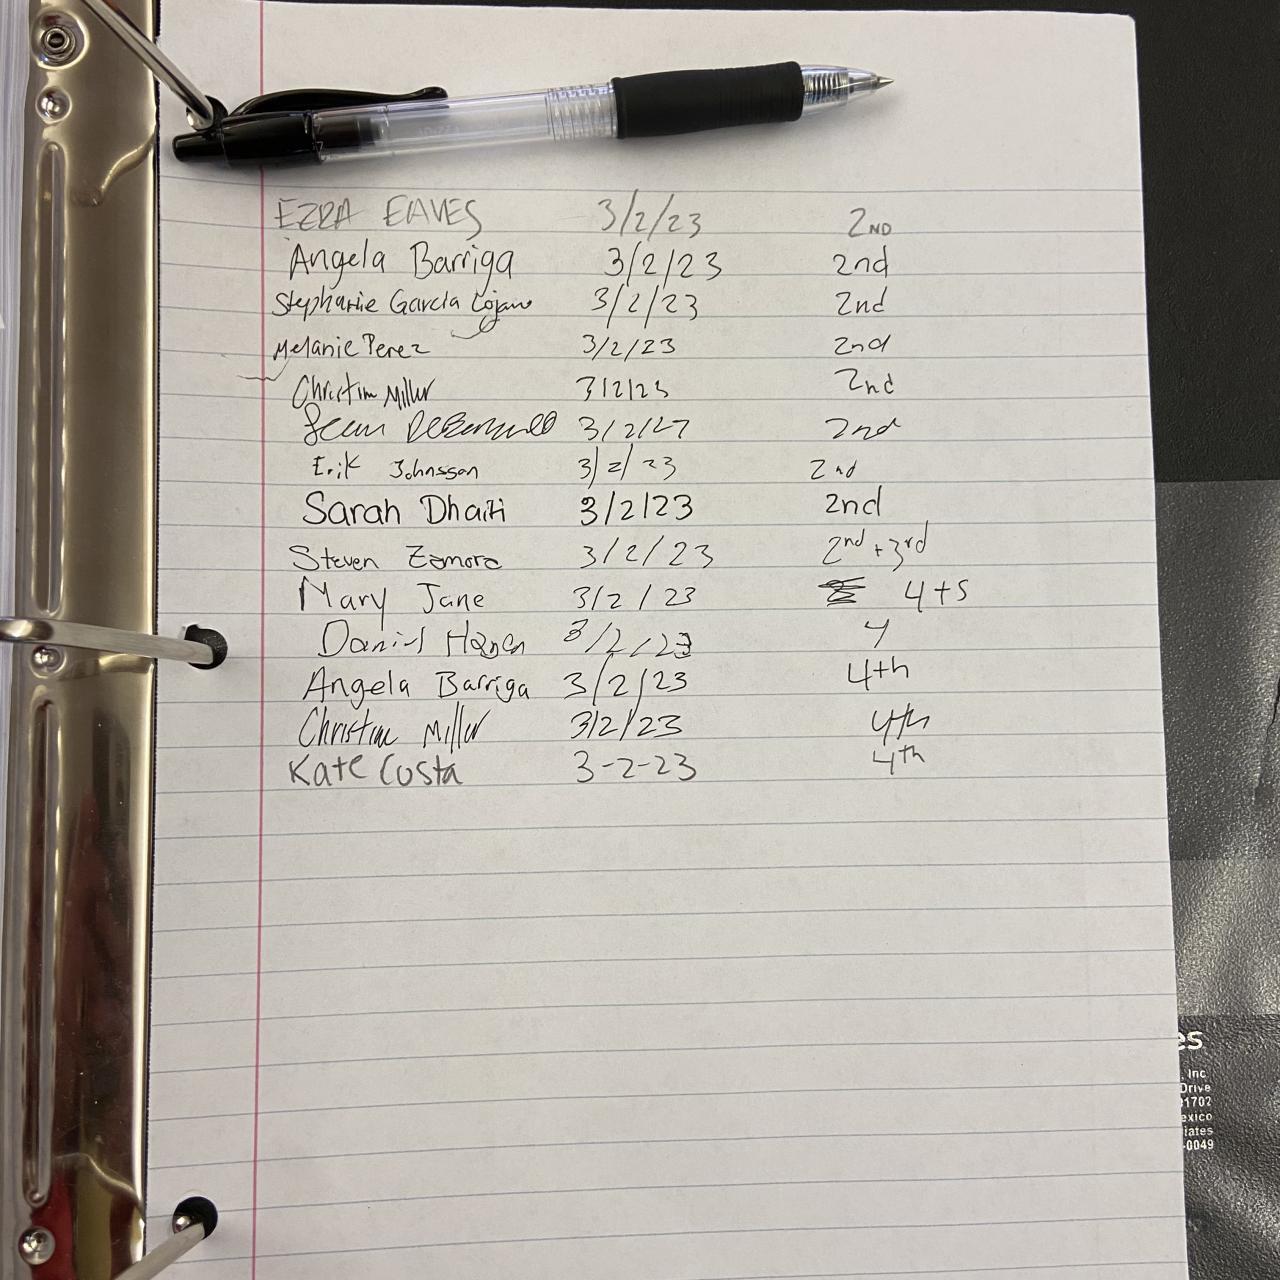 EZRA EAVES 3/2/23 2ND
Angela Barriga 3/2/23 2nd
Stephanie Garcia 3/2/23 2nd
Melanie Perez 3/2/23 2nd
Christine Miller 3/2/23 2nd
3/2/27 2nd
Erik Johnsson 3/2/23 2nd
Sarah Dhaiti 3/2/23 2nd
Steven Zamora 3/2/23 2nd + 3rd
Mary Jane 3/2/23 4+5
Daniel 3/2/23 4
Angela Barriga 3/2/23 4th
Christine Miller 3/2/23 4th
Kate Costa 3-2-23 4th
es
, Inc
Drive
1702
exico
iates
-0049